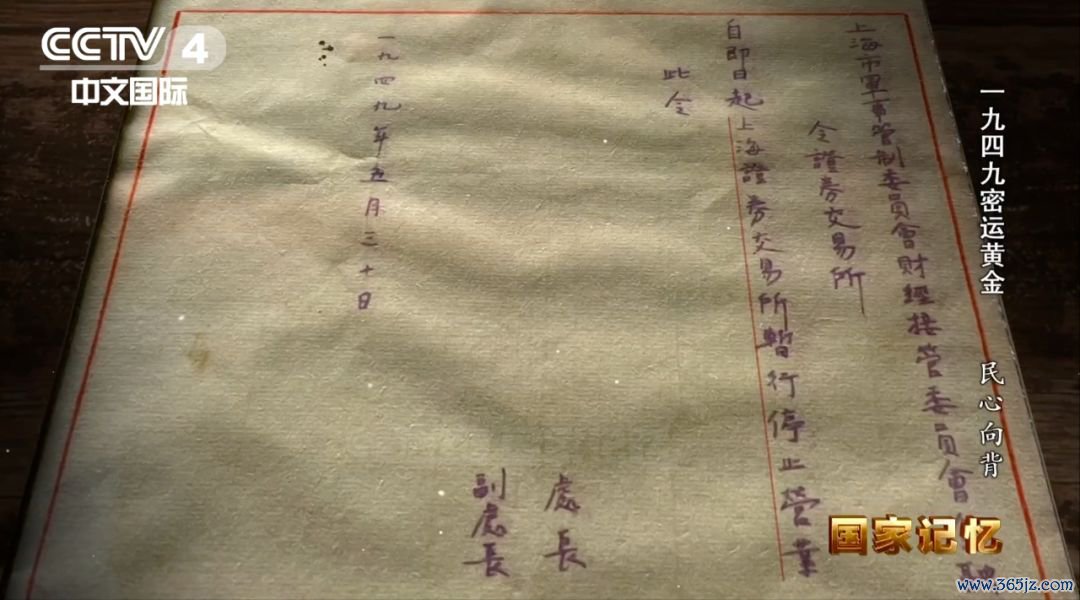 CCTV 4
中文国际
上海市軍事管制委員會財經接管委員會
令證券交易所
自即日起上海證券交易所暫行停止營業
此令
處長
副處長
一九四九年五月三十日
一九四九密运黄金 民心向背
国家记忆
www.365jz.com